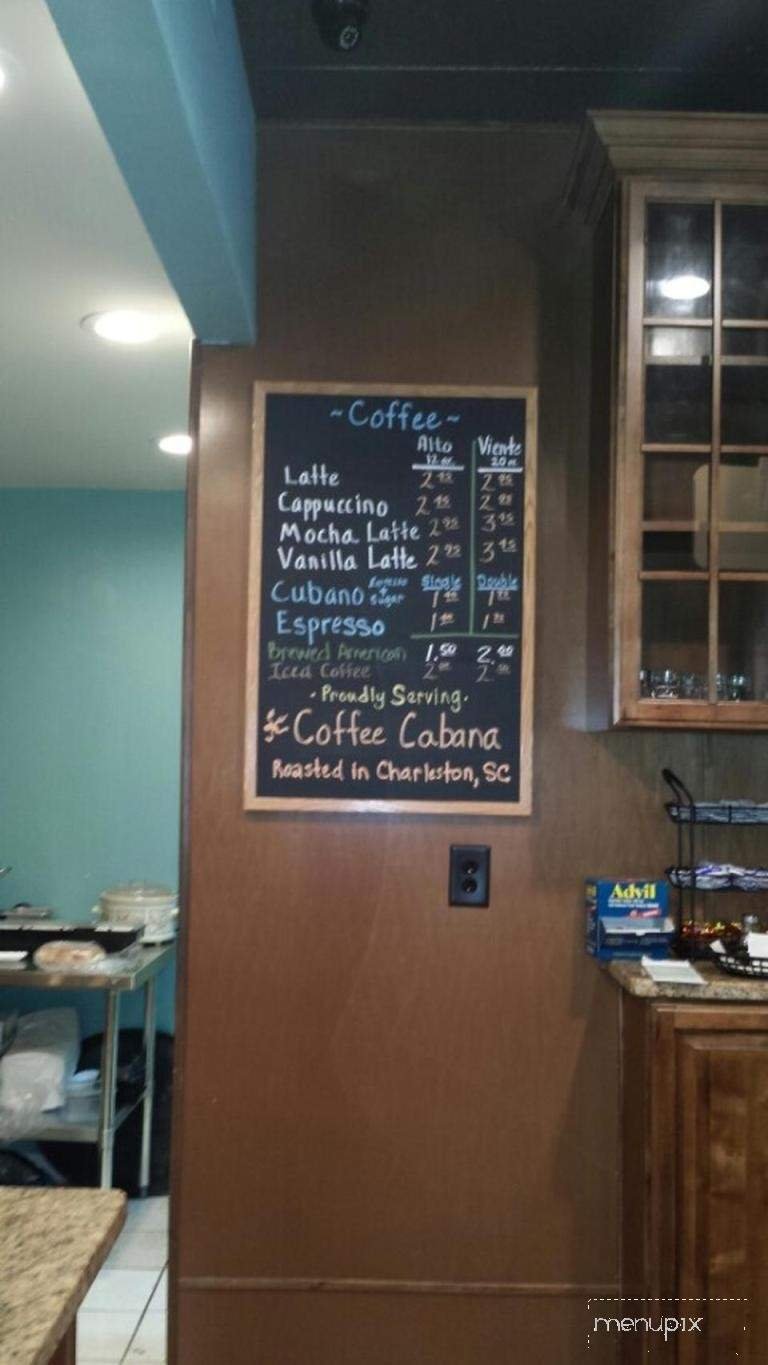 ~Coffee~
Alto Viente
12 oz. 20 oz.
Latte 2.45 2.95
Cappuccino 2.45 2.95
Mocha Latte 2.95 3.45
Vanilla Latte 2.95 3.45
Single Double
Cubano + sugar 1
Espresso 1
Brewed American 1.50 2.00
Iced Coffee 2 2
·Proudly Serving·
Coffee Cabana
Roasted in Charleston, SC
Advil
menupix